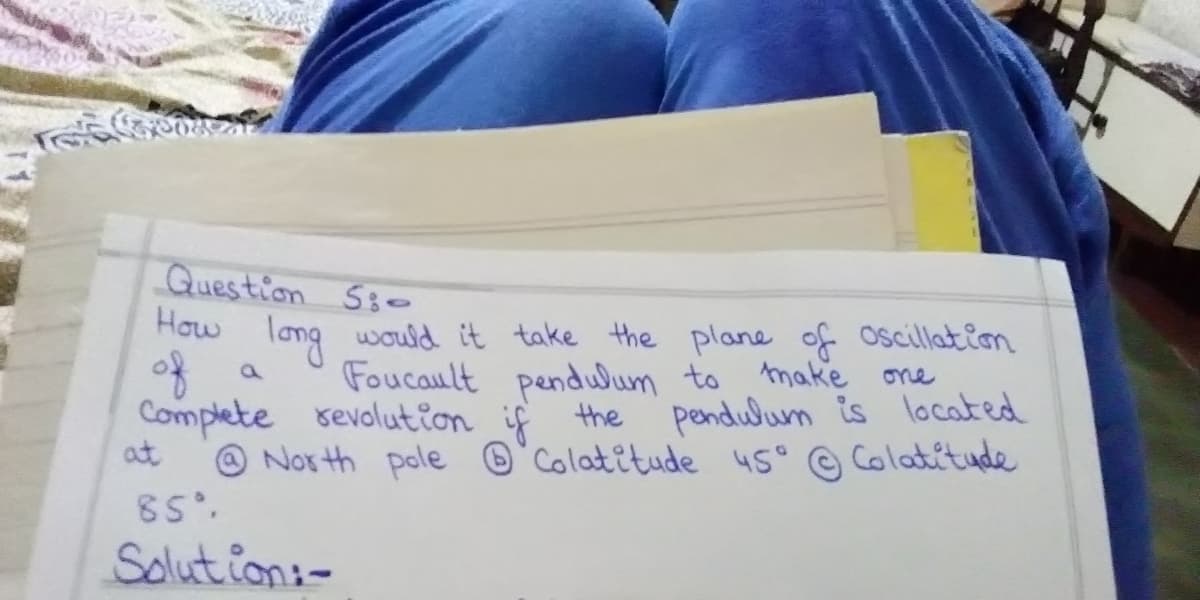 Question 5:-
How long would it take the plane of oscillation
of a Foucault pendulum to make one
Complete revolution if the pendulum is located
at ⓐ North pole ⓑ Colatitude 45° ⓒ Colatitude
85°.
Solution:-